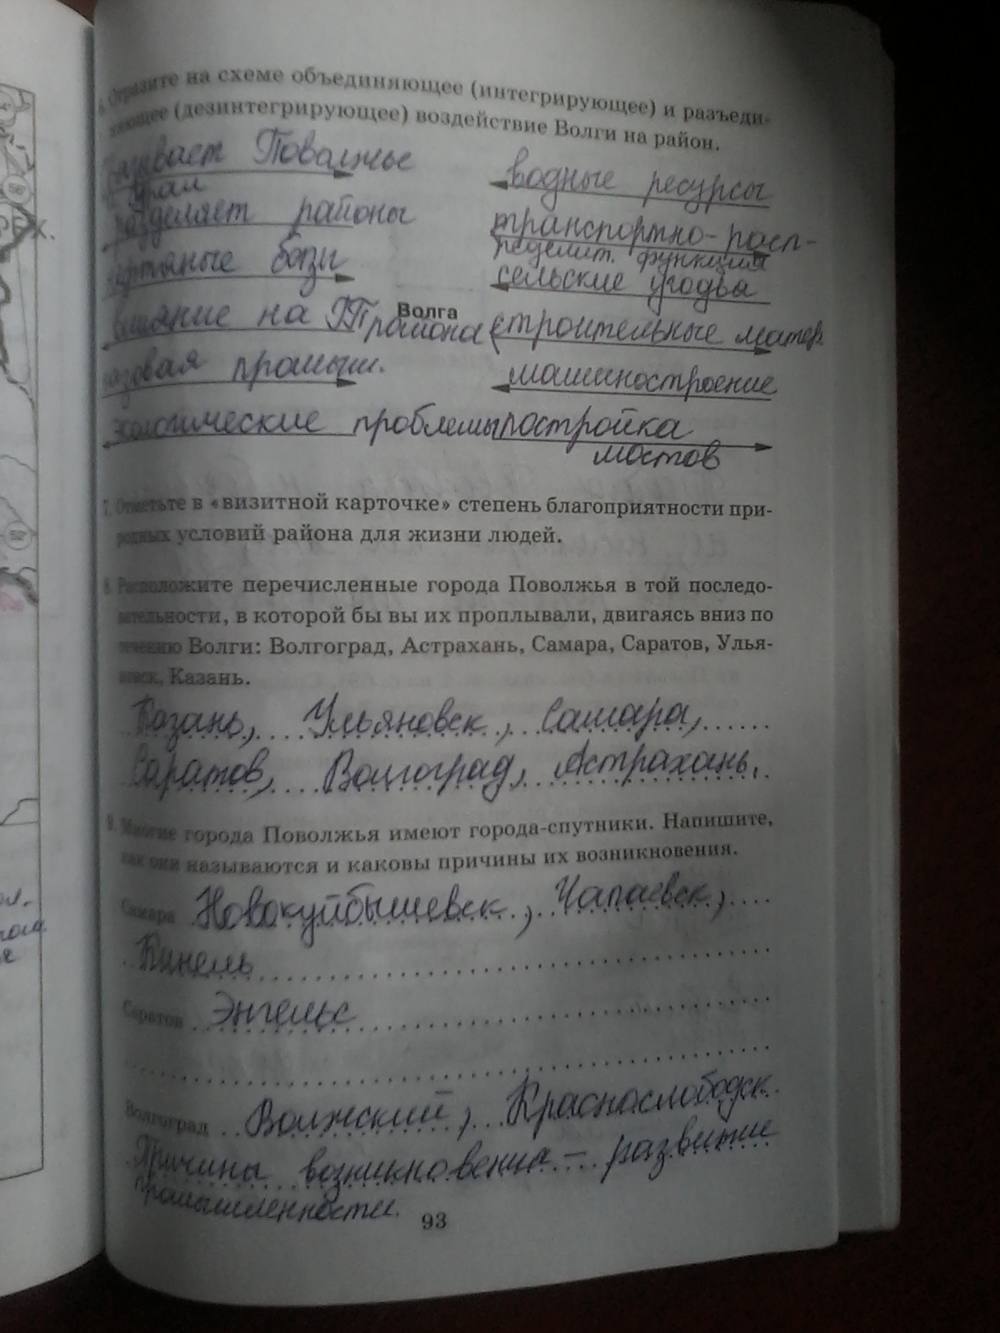 6. Отразите на схеме объединяющее (интегрирующее) и разъеди-
няющее (дезинтегрирующее) воздействие Волги на район.
Поволжье
Урал
водные ресурсы
разделяет районы
транспортно-расп-
ределит. функция
нефтяные базы
сельские угодья
Волга
влияние на ТПрайона
строительные матер.
газовая промышл.
машиностроение
экологические проблемы
постройка
мостов
7. Отметьте в «визитной карточке» степень благоприятности при-
родных условий района для жизни людей.
8. Расположите перечисленные города Поволжья в той последо-
вательности, в которой бы вы их проплывали, двигаясь вниз по
течению Волги: Волгоград, Астрахань, Самара, Саратов, Улья-
новск, Казань.
Казань, Ульяновск, Самара,
Саратов, Волгоград, Астрахань.
9. Многие города Поволжья имеют города-спутники. Напишите,
как они называются и каковы причины их возникновения.
Самара Новокуйбышевск, Чапаевск,
Кинель
Саратов Энгельс
Волгоград Волжский, Краснослободск.
Причина возникновения – развитие
промышленности.
93